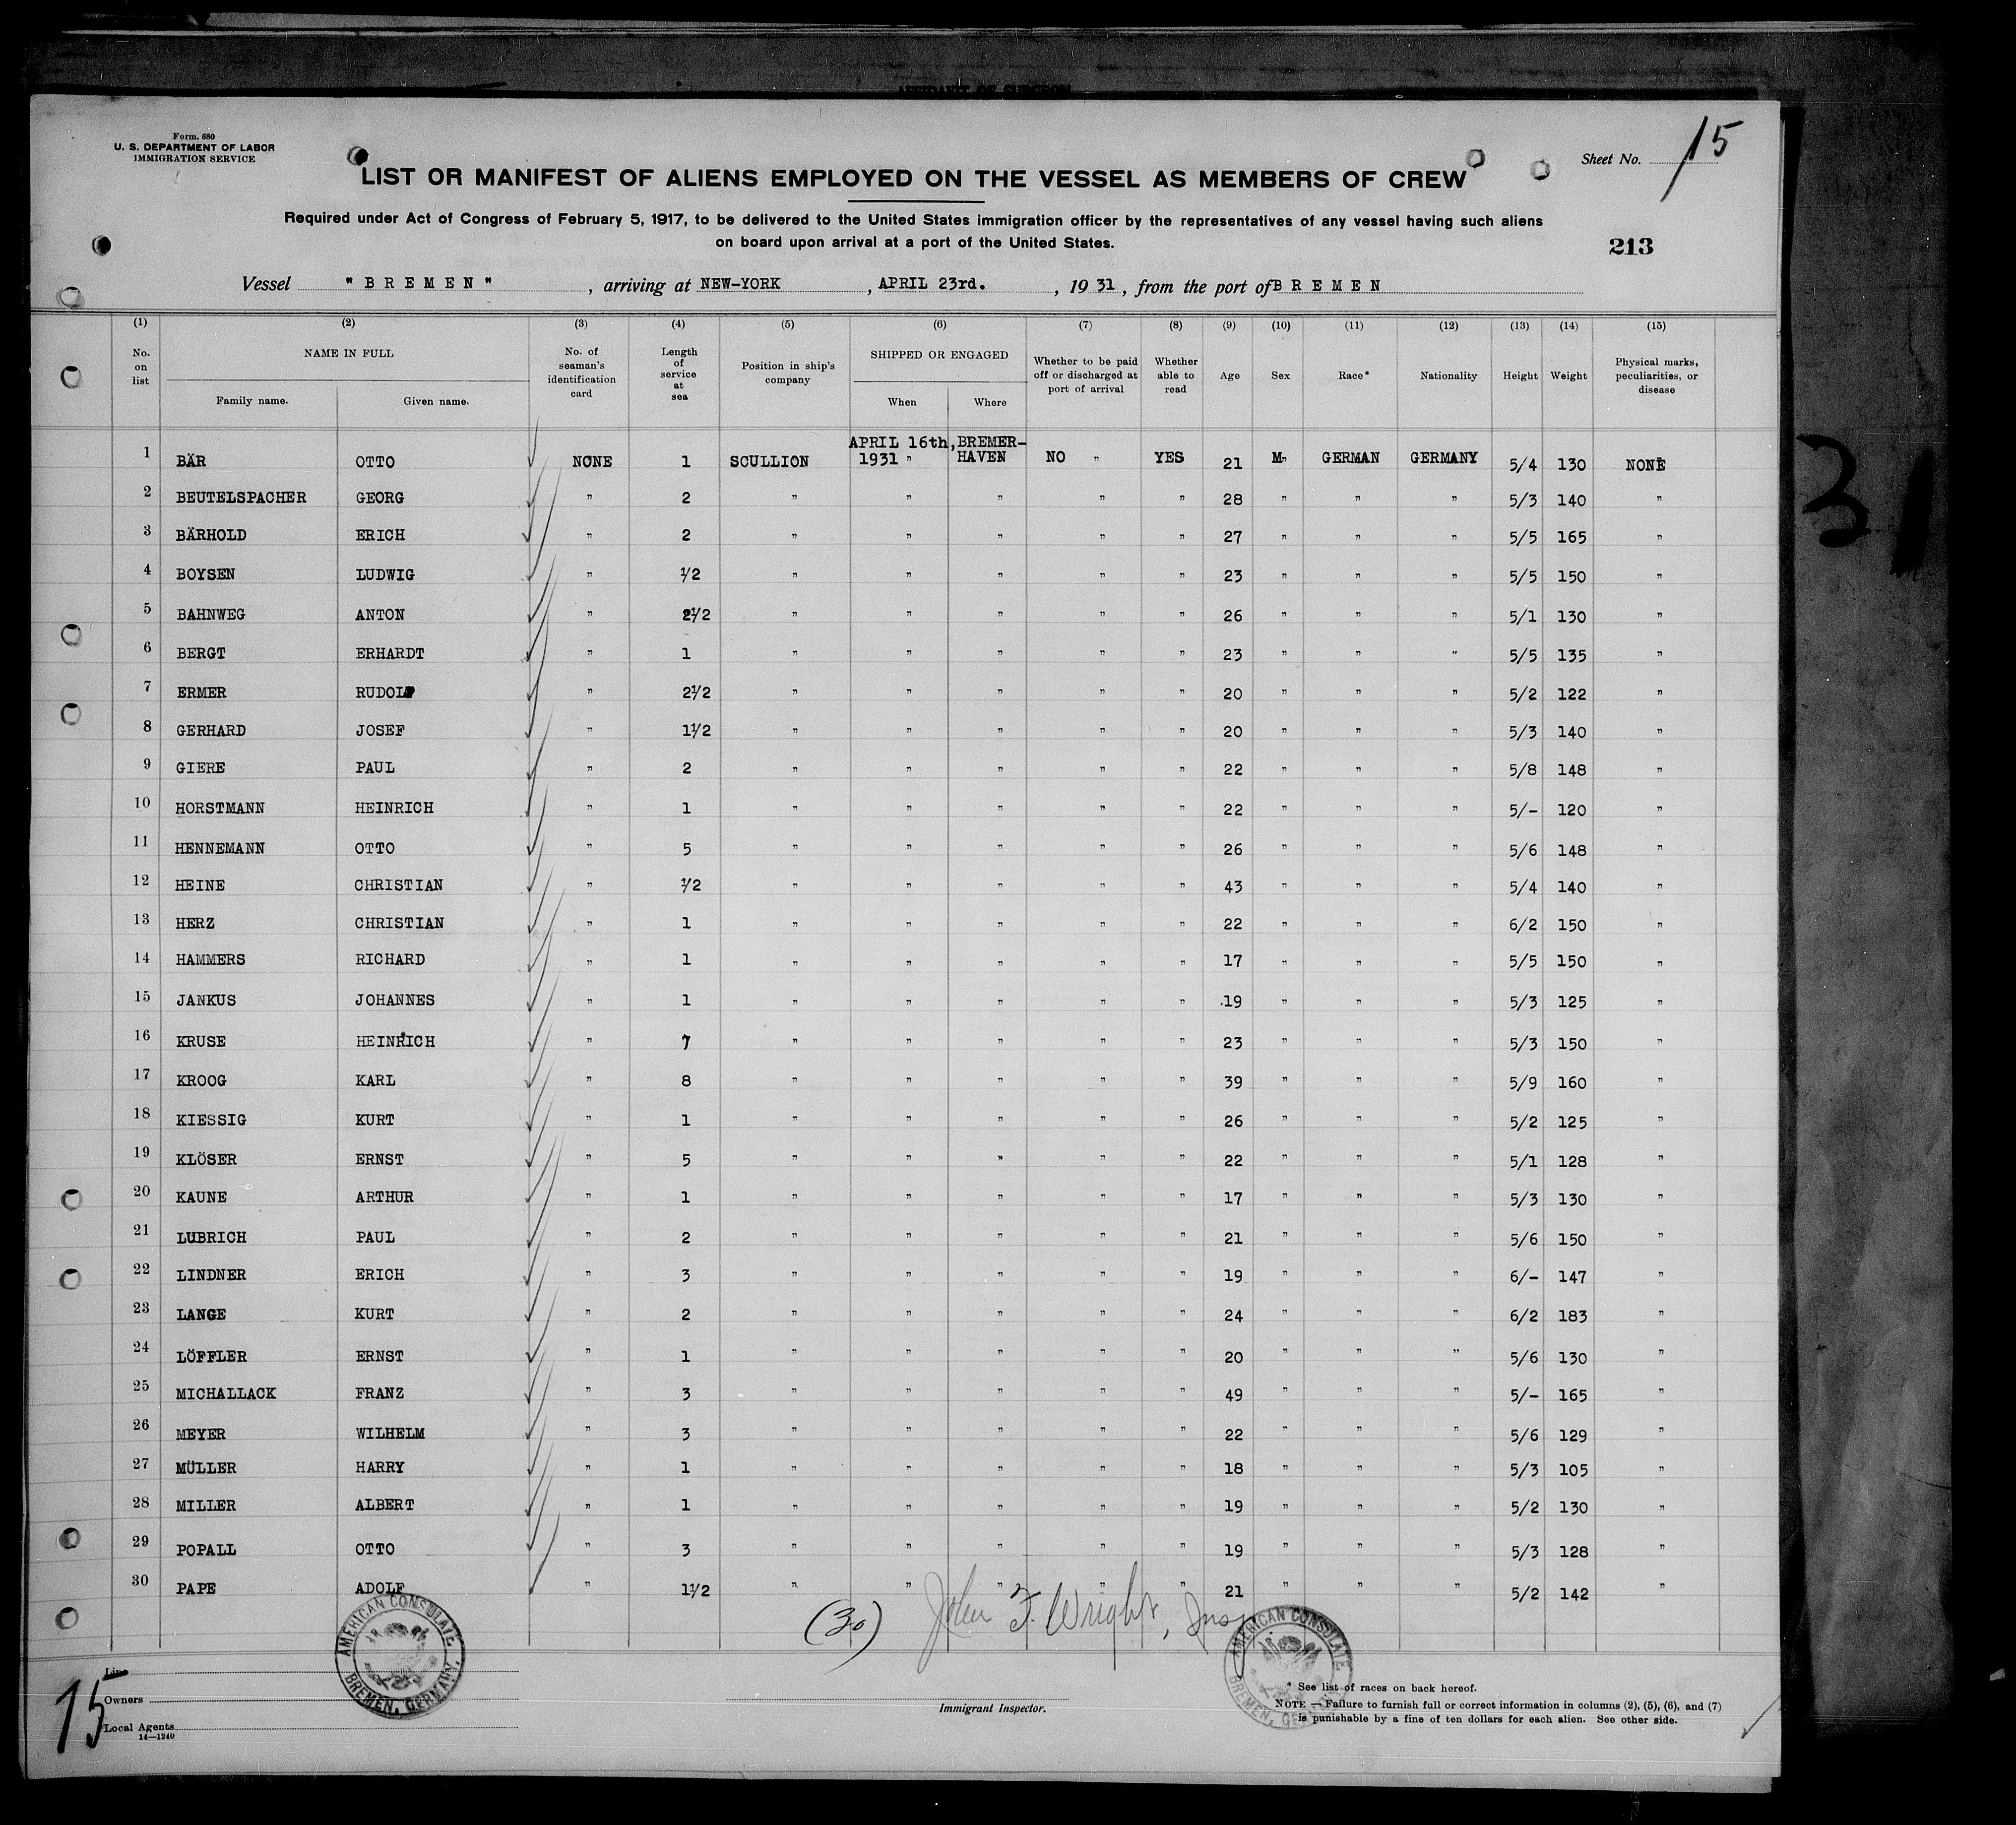 AFFIDAVIT OF SURGEON
Form. 680
U. S. DEPARTMENT OF LABOR
IMMIGRATION SERVICE
Sheet No. 15
LIST OR MANIFEST OF ALIENS EMPLOYED ON THE VESSEL AS MEMBERS OF CREW
Required under Act of Congress of February 5, 1917, to be delivered to the United States immigration officer by the representatives of any vessel having such aliens
on board upon arrival at a port of the United States.
213
Vessel "BREMEN", arriving at NEW-YORK, APRIL 23rd., 1931, from the port of BREMEN
(1) (2) (3) (4) (5) (6) (7) (8) (9) (10) (11) (12) (13) (14) (15)
No. on list NAME IN FULL Family name. Given name. No. of seaman's identification card Length of service at sea Position in ship's company SHIPPED OR ENGAGED When Where Whether to be paid off or discharged at port of arrival Whether able to read Age Sex Race* Nationality Height Weight Physical marks, peculiarities, or disease
1 BÄR OTTO NONE 1 SCULLION APRIL 16th, 1931 " BREMERHAVEN NO " YES 21 M" GERMAN GERMANY 5/4 130 NONE
2 BEUTELSPACHER GEORG " 2 " " " " " 28 " " " 5/3 140 "
3 BÄRHOLD ERICH " 2 " " " " " 27 " " " 5/5 165 "
4 BOYSEN LUDWIG " 1/2 " " " " " 23 " " " 5/5 150 "
5 BAHNWEG ANTON " 2 1/2 " " " " " 26 " " " 5/1 130 "
6 BERGT ERHARDT " 1 " " " " " 23 " " " 5/5 135 "
7 ERMER RUDOLF " 2 1/2 " " " " " 20 " " " 5/2 122 "
8 GERHARD JOSEF " 1 1/2 " " " " " 20 " " " 5/3 140 "
9 GIERE PAUL " 2 " " " " " 22 " " " 5/8 148 "
10 HORSTMANN HEINRICH " 1 " " " " " 22 " " " 5/- 120 "
11 HENNEMANN OTTO " 5 " " " " " 26 " " " 5/6 148 "
12 HEINE CHRISTIAN " 1/2 " " " " " 43 " " " 5/4 140 "
13 HERZ CHRISTIAN " 1 " " " " " 22 " " " 6/2 150 "
14 HAMMERS RICHARD " 1 " " " " " 17 " " " 5/5 150 "
15 JANKUS JOHANNES " 1 " " " " " 19 " " " 5/3 125 "
16 KRUSE HEINRICH " 7 " " " " " 23 " " " 5/3 150 "
17 KROOG KARL " 8 " " " " " 39 " " " 5/9 160 "
18 KIESSIG KURT " 1 " " " " " 26 " " " 5/2 125 "
19 KLÖSER ERNST " 5 " " " " " 22 " " " 5/1 128 "
20 KAUNE ARTHUR " 1 " " " " " 17 " " " 5/3 130 "
21 LUBRICH PAUL " 2 " " " " " 21 " " " 5/6 150 "
22 LINDNER ERICH " 3 " " " " " 19 " " " 6/- 147 "
23 LANGE KURT " 2 " " " " " 24 " " " 6/2 183 "
24 LÖFFLER ERNST " 1 " " " " " 20 " " " 5/6 130 "
25 MICHALLACK FRANZ " 3 " " " " " 49 " " " 5/- 165 "
26 MEYER WILHELM " 3 " " " " " 22 " " " 5/6 129 "
27 MÜLLER HARRY " 1 " " " " " 18 " " " 5/3 105 "
28 MILLER ALBERT " 1 " " " " " 19 " " " 5/2 130 "
29 POPALL OTTO " 3 " " " " " 19 " " " 5/3 128 "
30 PAPE ADOLF " 1 1/2 " " " " " 21 " " " 5/2 142 "
(30) John F. Wright, Insp
AMERICAN CONSULATE BREMEN, GERMANY.
AMERICAN CONSULATE BREMEN, GERMANY.
31
15
Line
Owners
Local Agents
14—1240
Immigrant Inspector.
* See list of races on back hereof.
NOTE — Failure to furnish full or correct information in columns (2), (5), (6), and (7)
is punishable by a fine of ten dollars for each alien. See other side.